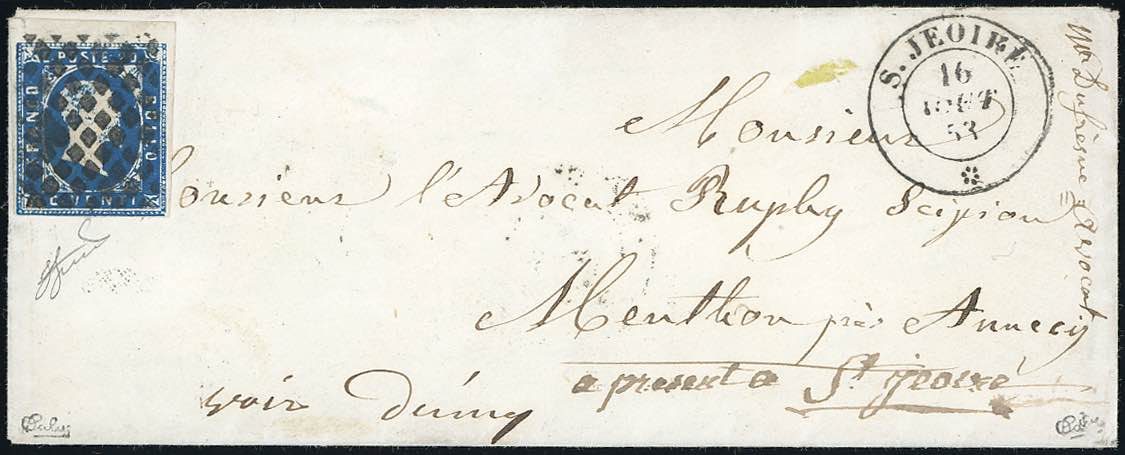 C. POSTE 20
FRANCO
BOLLO
S. JEOIRE
16
AOUT
53
Monsieur
Monsieur l'Avocat Ruphy Scipion
Menthon près Annecy
a present a St Jeoire
voir
Mr Dufresne Avocat